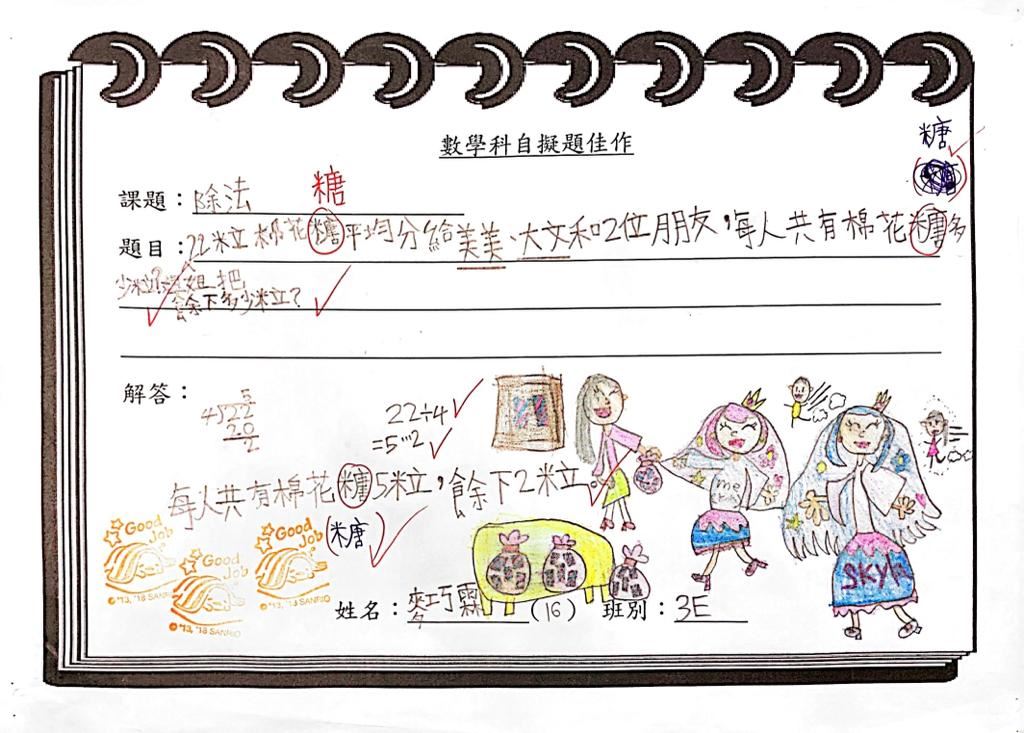 數學科自擬題佳作
糖
課題：除法
糖
題目：22粒棉花糖平均分給美美、大文和2位朋友，每人共有棉花糖多
少粒？
餘下多少粒？
解答：
5
4 22
20
2
22÷4
=5…2
每人共有棉花糖5粒，餘下2粒
(糖)
Good Job
Good Job
Good Job
©'13, '18 SANRIO
©'13, '18 SANRIO
©'13, '18 SANRIO
me
SKY
姓名：麥巧霖 (16) 班別：3E